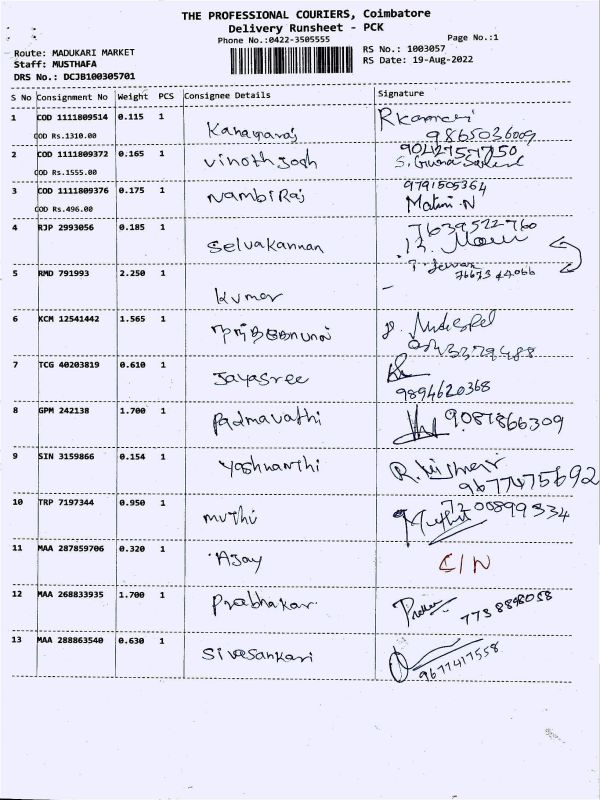 THE PROFESSIONAL COURIERS, Coimbatore
Delivery Runsheet - PCK
Phone No.:0422-3505555
Page No.:1
Route: MADUKARI MARKET
RS No.: 1003057
Staff: MUSTHAFA
RS Date: 19-Aug-2022
DRS No.: DCJB100305701
S No Consignment No Weight PCS Consignee Details Signature
1 COD 1111809514 0.115 1
COD Rs.1310.00 Kanagaraj 9865036009
2 COD 1111809372 0.165 1 Vinoth Josh
COD Rs.1555.00
3 COD 1111809376 0.175 1 Nambi Raj 9791505364
COD Rs.496.00
4 RJP 2993056 0.185 1 7639522760
Selvakannan
5 RMD 791993 2.250 1
Kumar
6 KCM 12541442 1.565 1
7 TCG 40203819 0.610 1 Jayasree
9894620368
8 GPM 242138 1.700 1 Padmavathi 9087866309
9 SIN 3159866 0.154 1 Yashnanthi
9677475692
10 TRP 7197344 0.950 1 muthu 7200899334
11 MAA 287859706 0.320 1 AJay C/N
12 MAA 268833935 1.700 1 Prabhakar
13 MAA 288863540 0.630 1 Sivasankari
9677417558